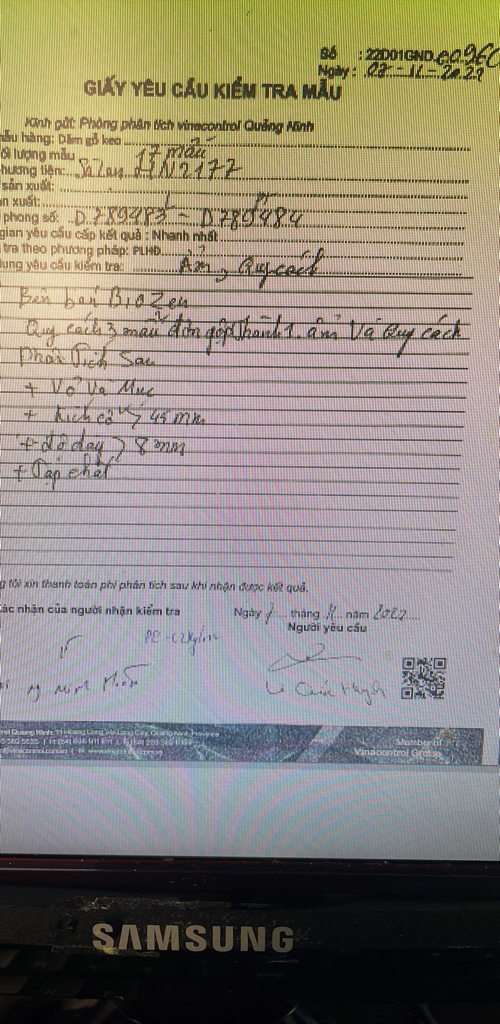 Số : 22D01GND.00960
Ngày: 02-11-2022
GIẤY YÊU CẦU KIỂM TRA MẪU
Kính gửi: Phòng phân tích vinacontrol Quảng Ninh
ẫu hàng: Dăm gỗ keo
ối lượng mẫu 17 mẫu
hương tiện: Sà Lan HN2177
sản xuất:
n xuất:
phong số: D.789483 - D789484
gian yêu cầu cấp kết quả : Nhanh nhất
tra theo phương pháp: PLHĐ
dung yêu cầu kiểm tra: Ẩm, Quy cách
Bên bán BioZen
Quy cách 3 mẫu đơn gộp thành 1. ẩm Và Quy cách
Phân Tích Sau
+ Vỏ Và Mục
+ Kích cỡ > 45 mm
+ độ dày > 8 mm
+ Tạp chất
g tôi xin thanh toán phí phân tích sau khi nhận được kết quả.
ác nhận của người nhận kiểm tra
Ngày tháng 11 năm 2022
Người yêu cầu
Member of
Vinacontrol Group
SAMSUNG